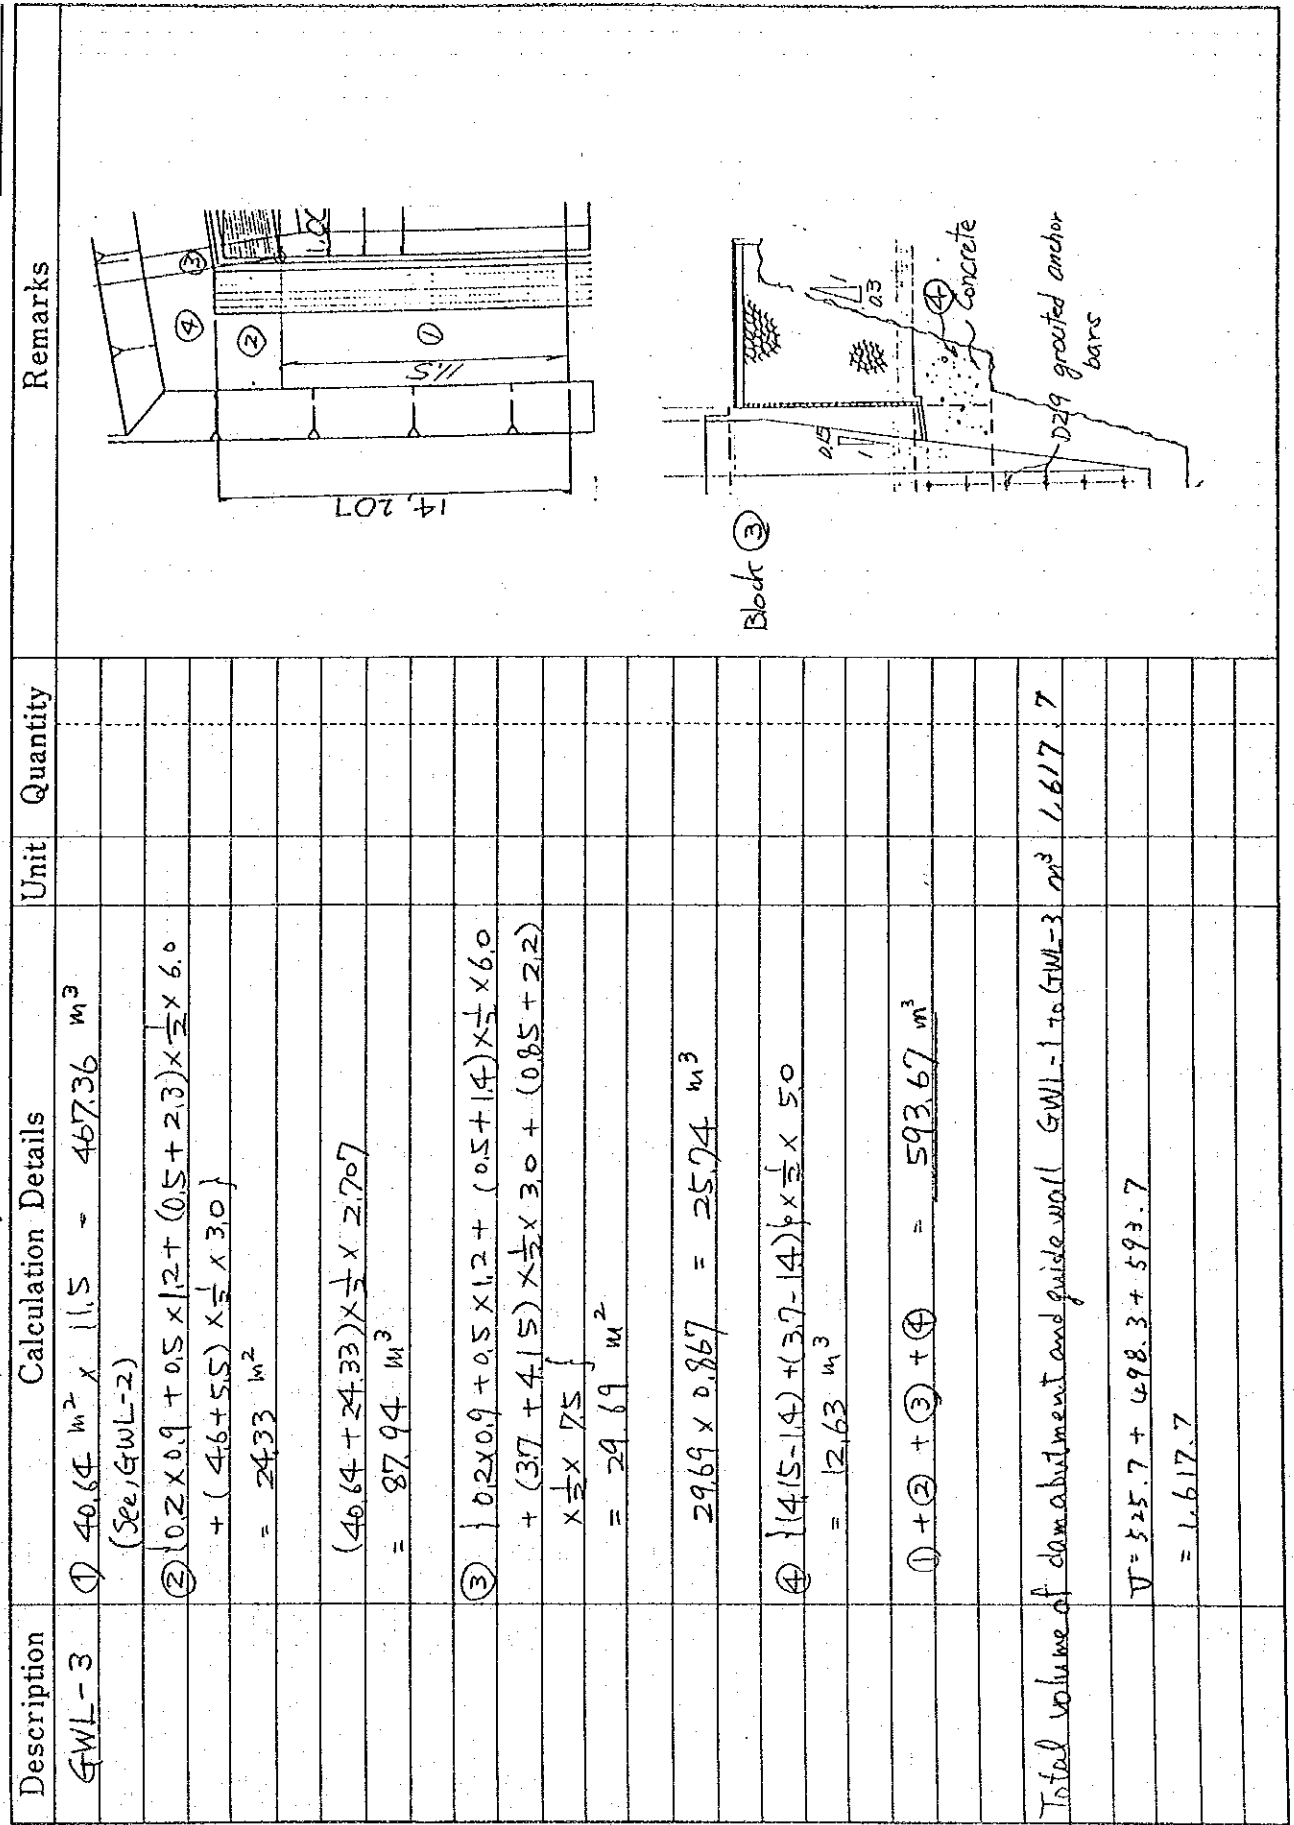 Description Calculation Details Unit Quantity Remarks
GWL-3 ① 40.64 m² x 11.5 = 467.36 m³
(See, GWL-2)
② {0.2 x 0.9 + 0.5 x 1.2 + (0.5 + 2.3) x 1/2 x 6.0
+ (4.6 + 5.5) x 1/2 x 3.0}
= 24.33 m²
(40.64 + 24.33) x 1/2 x 2.707
= 87.94 m³
③ {0.2 x 0.9 + 0.5 x 1.2 + (0.5 + 1.4) x 1/2 x 6.0
+ (3.7 + 4.15) x 1/2 x 3.0 + (0.85 + 2.2)
x 1/2 x 7.5}
= 29.69 m²
29.69 x 0.867 = 25.74 m³
④ {(4.15-1.4) + (3.7-1.4)} x 1/2 x 5.0
= 12.63 m³
① + ② + ③ + ④ = 593.67 m³
Total volume of dam abutment and guide wall GWL-1 to GWL-3 m³ 1,617.7
V = 525.7 + 498.3 + 593.7
= 1,617.7
③
④
②
①
11.5
14,207
Block ③
0.15
1
1
0.3
④
Concrete
D29 grouted anchor
bars